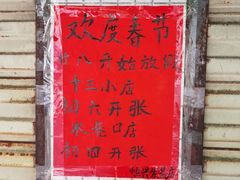 欢度春节
廿八开始放假
十三小店
初六开张
水巷口店
初四开张